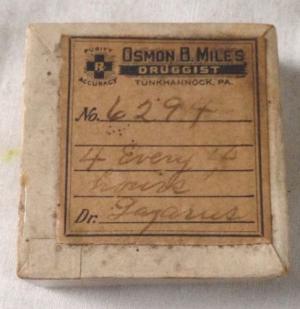 PURITY
R
ACCURACY
OSMON B. MILES
DRUGGIST
TUNKHANNOCK, PA.
No. 6294
4 every 4
hours
Dr. Lazarus